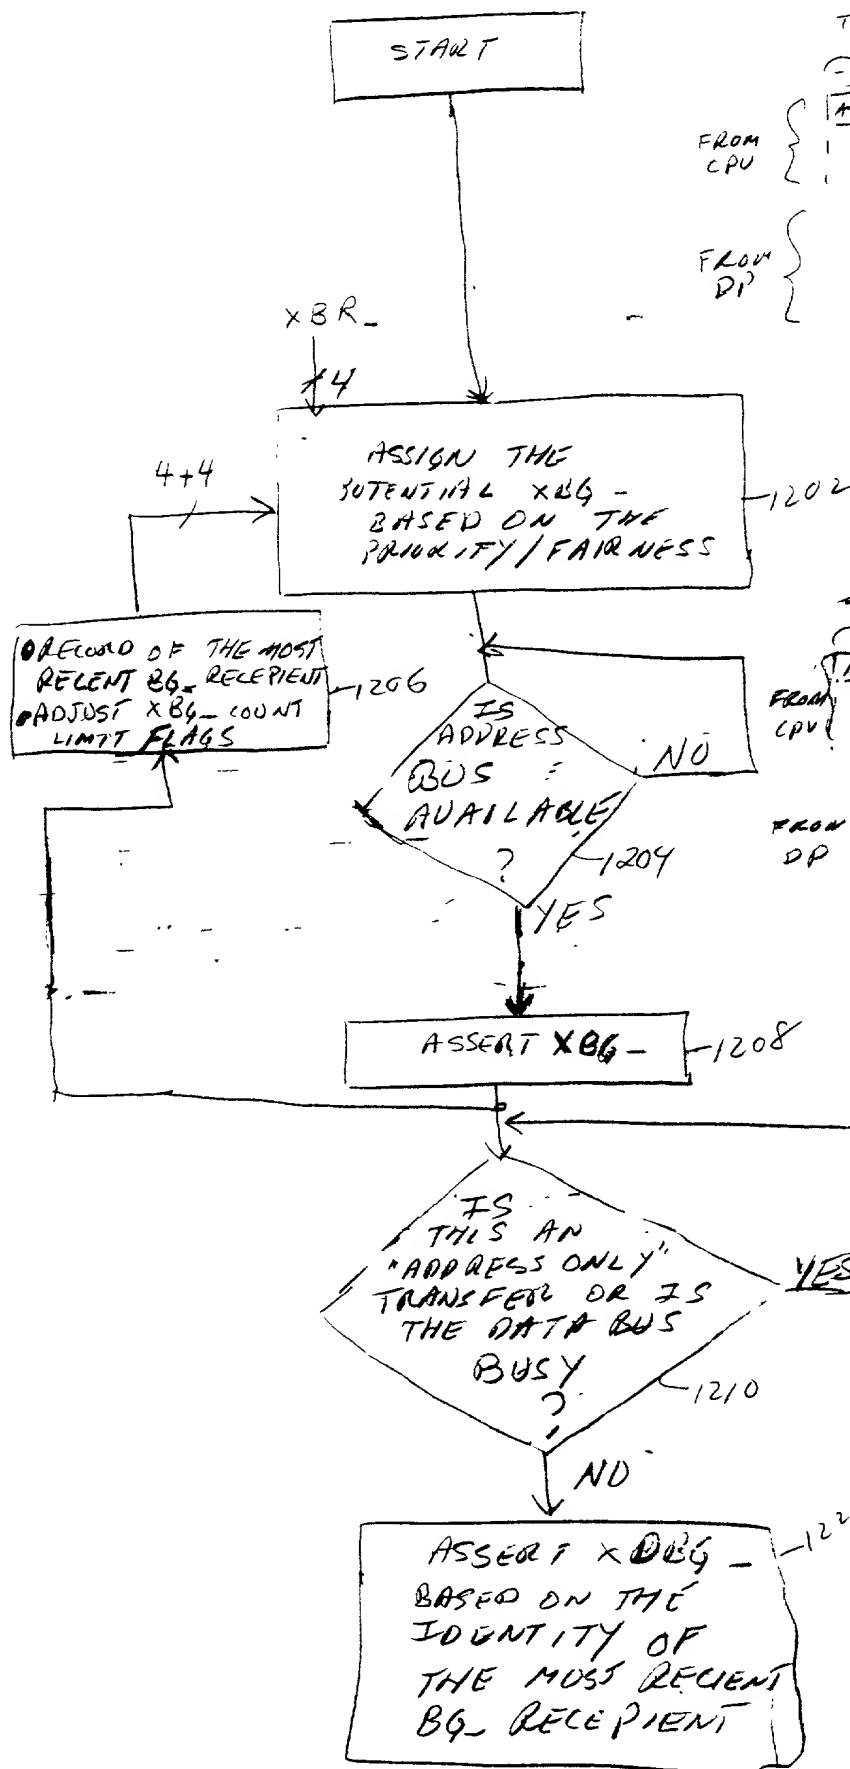 START
FROM
CPU
FROM
DP
XBR_
4
4+4
ASSIGN THE
POTENTIAL XBG_
BASED ON THE
PRIORITY/FAIRNESS
1202
RECORD OF THE MOST
RECENT BG_ RECEPIENT
ADJUST XBG_ COUNT
LIMIT FLAGS
1206
IS
ADDRESS
BUS
AVAILABLE
?
NO
1204
YES
FROM
CPU
FROM
DP
ASSERT XBG_
1208
IS
THIS AN
"ADDRESS ONLY"
TRANSFER OR IS
THE DATA BUS
BUSY
?
YES
1210
NO
ASSERT XDBG_
BASED ON THE
IDENTITY OF
THE MOST RECIENT
BG_ RECEPIENT
122